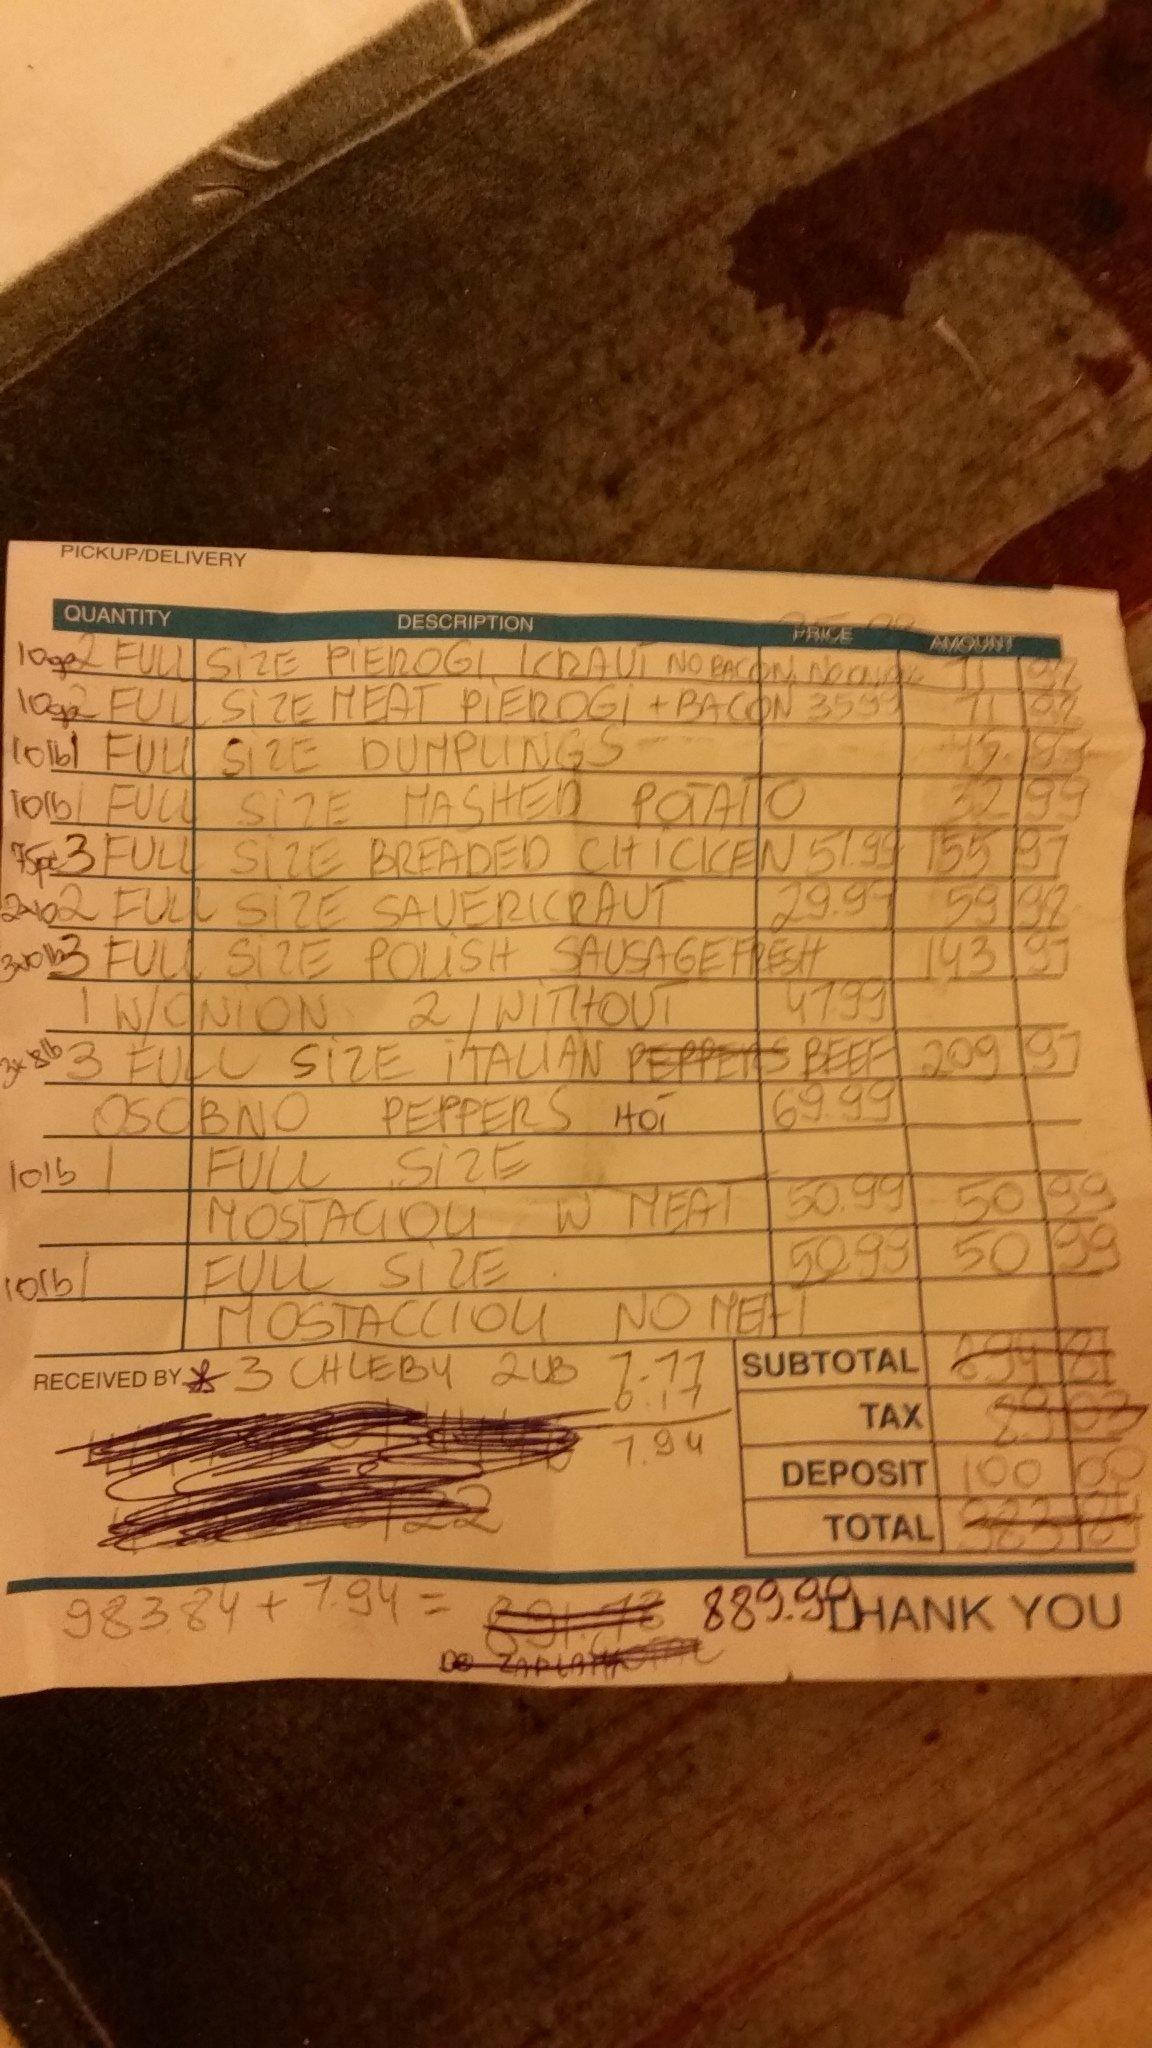 PICKUP/DELIVERY
QUANTITY DESCRIPTION PRICE AMOUNT
2 FULL SIZE PIEROGI KRAUT NO BACON, NO ONION 71 98
2 FULL SIZE MEAT PIEROGI + BACON 35.99 71 98
10lb 1 FULL SIZE DUMPLINGS 45 99
10lb 1 FULL SIZE MASHED POTATO 32 99
75pc 3 FULL SIZE BREADED CHICKEN 51.99 155 97
2x10 2 FULL SIZE SAUERKRAUT 29.99 59 98
3x10lb 3 FULL SIZE POLISH SAUSAGE FRESH 143 97
1 W/ONION 2/WITHOUT 47.99
3x8lb 3 FULL SIZE ITALIAN PEPPERS BEEF 209 97
OSOBNO PEPPERS HOT 69.99
10lb 1 FULL SIZE
MOSTACIOLI W MEAT 50.99 50 99
10lb 1 FULL SIZE 50.99 50 99
MOSTACCIOLI NO MEAT
RECEIVED BY * 3 CHLEBY 2LB 7.77 SUBTOTAL 894 81
0.17
7.94
TAX 89 03
DEPOSIT 100 00
TOTAL 983 84
983.84 + 7.94 = 891.78 889.99 THANK YOU